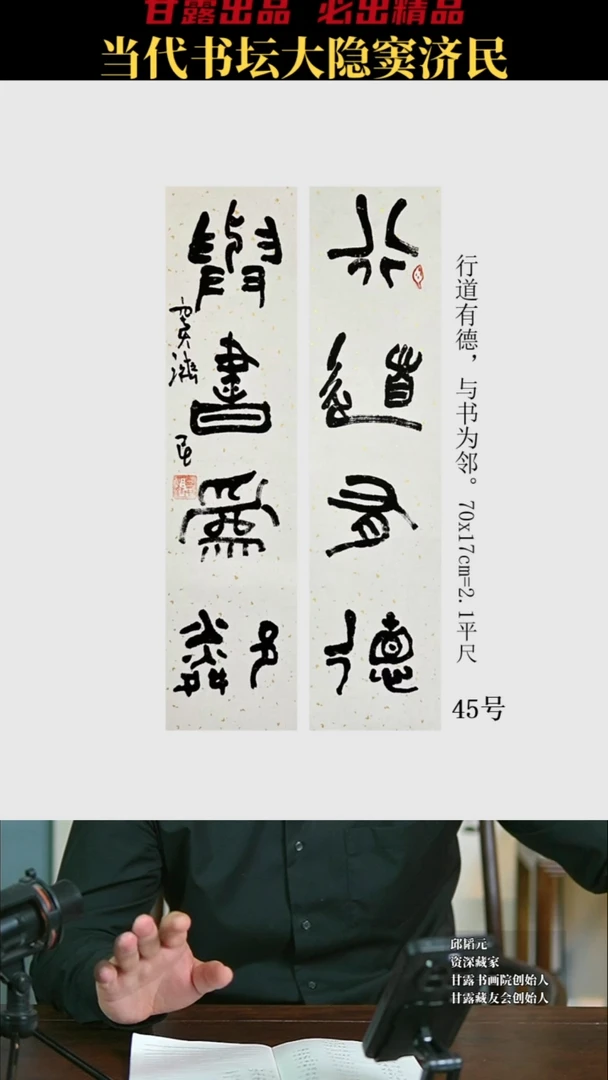 甘露出品 必出精品
当代书坛大隐窦济民
行道有德
與書為鄰
窦濟民
行道有德，与书为邻。70x17cm=2.1平尺
45号
邱韬元
资深藏家
甘露书画院创始人
甘露藏友会创始人